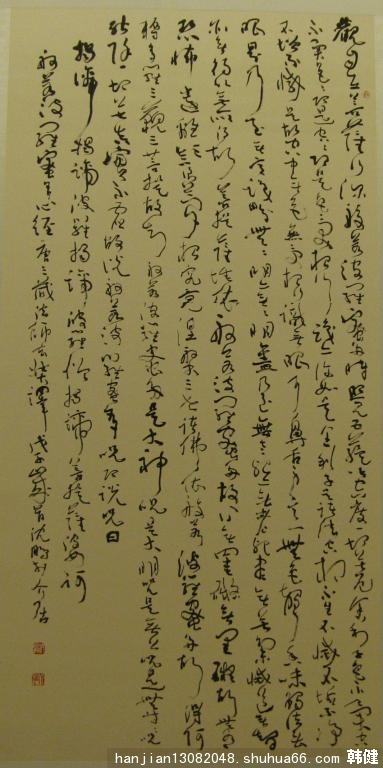 觀自在菩薩行深般若波羅蜜多時照見五蘊皆空度一切苦厄舍利子色不異空空
不異色色即是空空即是色受想行識亦復如是舍利子是諸法空相不生不滅不垢不淨
不增不減是故空中無色無受想行識無眼耳鼻舌身意無色聲香味觸法無
眼界乃至無意識界無無明亦無無明盡乃至無老死亦無老死盡無苦集滅道無智
亦無得以無所得故菩提薩埵依般若波羅蜜多故心無罣礙無罣礙故無有
恐怖遠離顛倒夢想究竟涅槃三世諸佛依般若波羅蜜多故得阿
耨多羅三藐三菩提故知般若波羅蜜多是大神咒是大明咒是無上咒是無等等咒
能除一切苦真實不虛故說般若波羅蜜多咒即說咒曰
揭諦揭諦波羅揭諦波羅僧揭諦菩提薩婆訶
般若波羅蜜多心經唐三藏法師玄奘譯戊子歲首沈鵬於介居
hanjian13082048.shuhua66.com 韩健